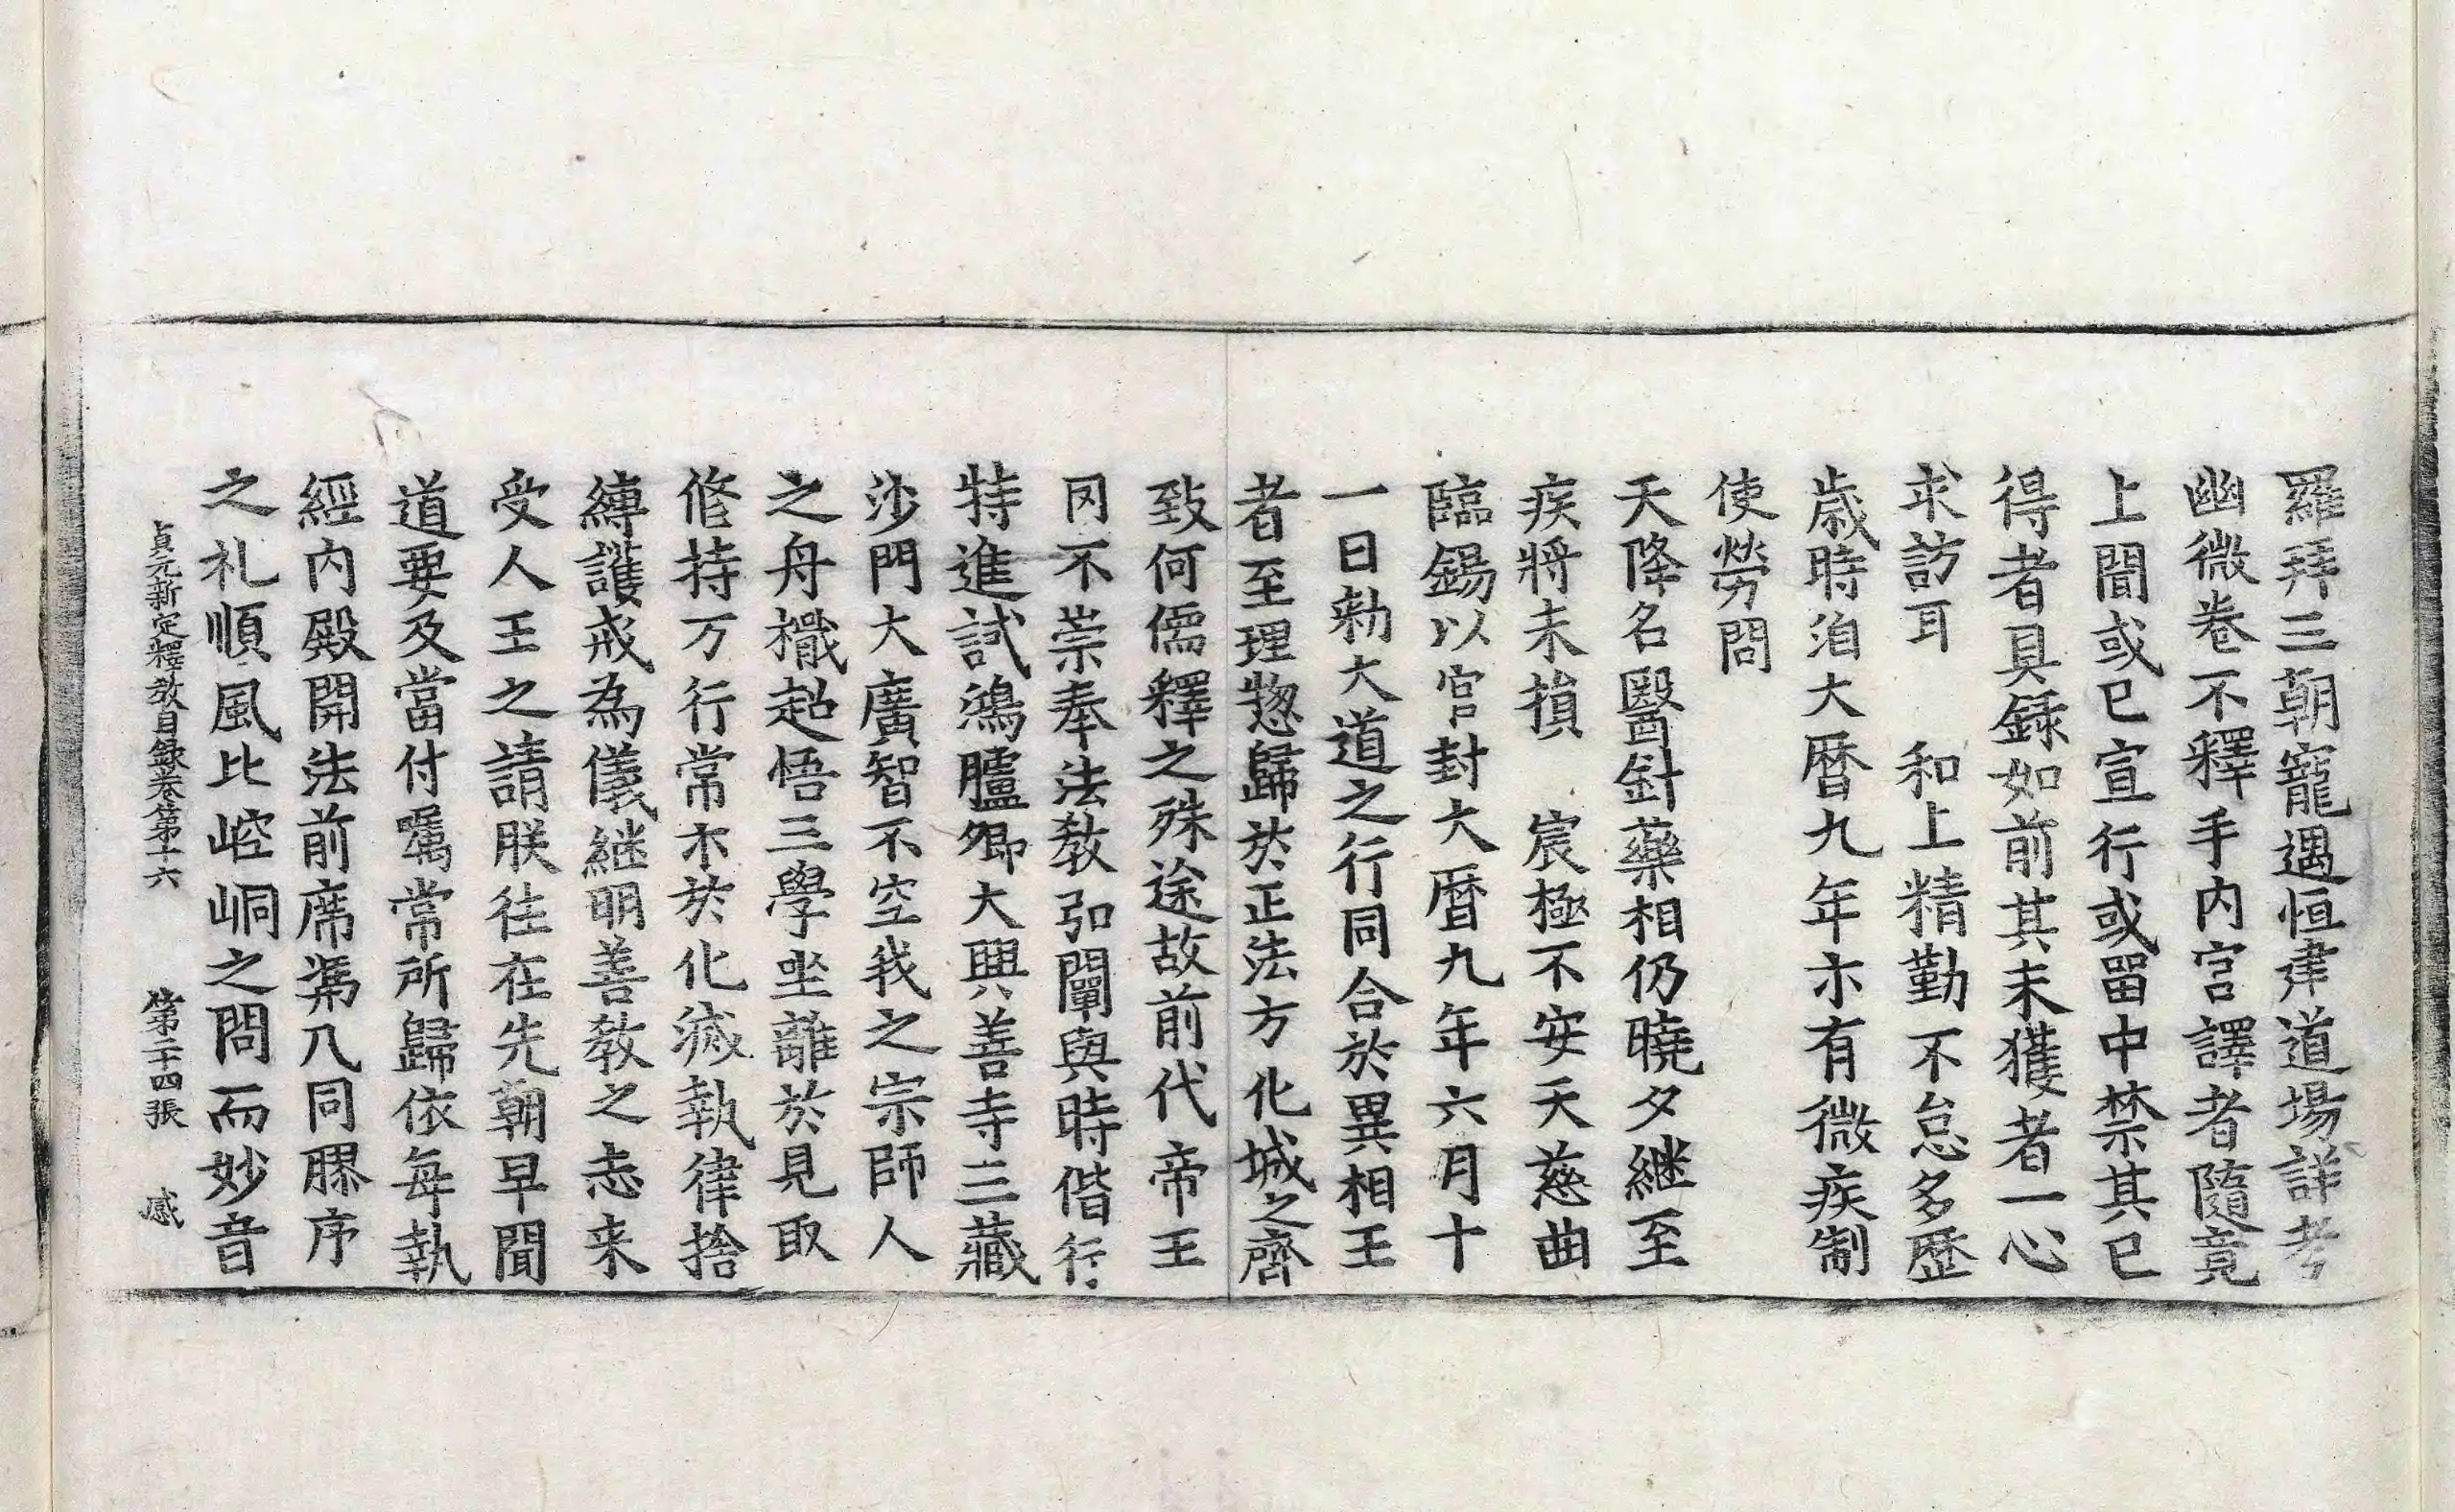 羅拜三朝寵遇恒建道場詳考
幽微卷不釋手內宮譯者隨竟
上聞或已宣行或留中禁其已
得者具録如前其未獲者一心
求訪耳　和上精勤不怠多歷
歲時洎大曆九年亦有微疾制
使勞問
天降名醫針藥相仍曉夕継至
疾將未損　宸極不安天慈曲
臨錫以官封大曆九年六月十
一日勑大道之行同合於異相王
者至理惣歸於正法方化城之齊
致何儒釋之殊途故前代帝王
罔不崇奉法教弘闡與時偕行
特進試鴻臚卿大興善寺三藏
沙門大廣智不空我之宗師人
之舟檝超悟三學坐離於見取
修持万行常示於化滅執律捨
縛護戒為儀継明善教之志来
受人王之請朕往在先朝早聞
道要及當付囑常所歸依每執
經內殿開法前席馮几同膠序
之礼順風比崆峒之問而妙音
貞元新定釋教目録卷第十六　第二十四張　感